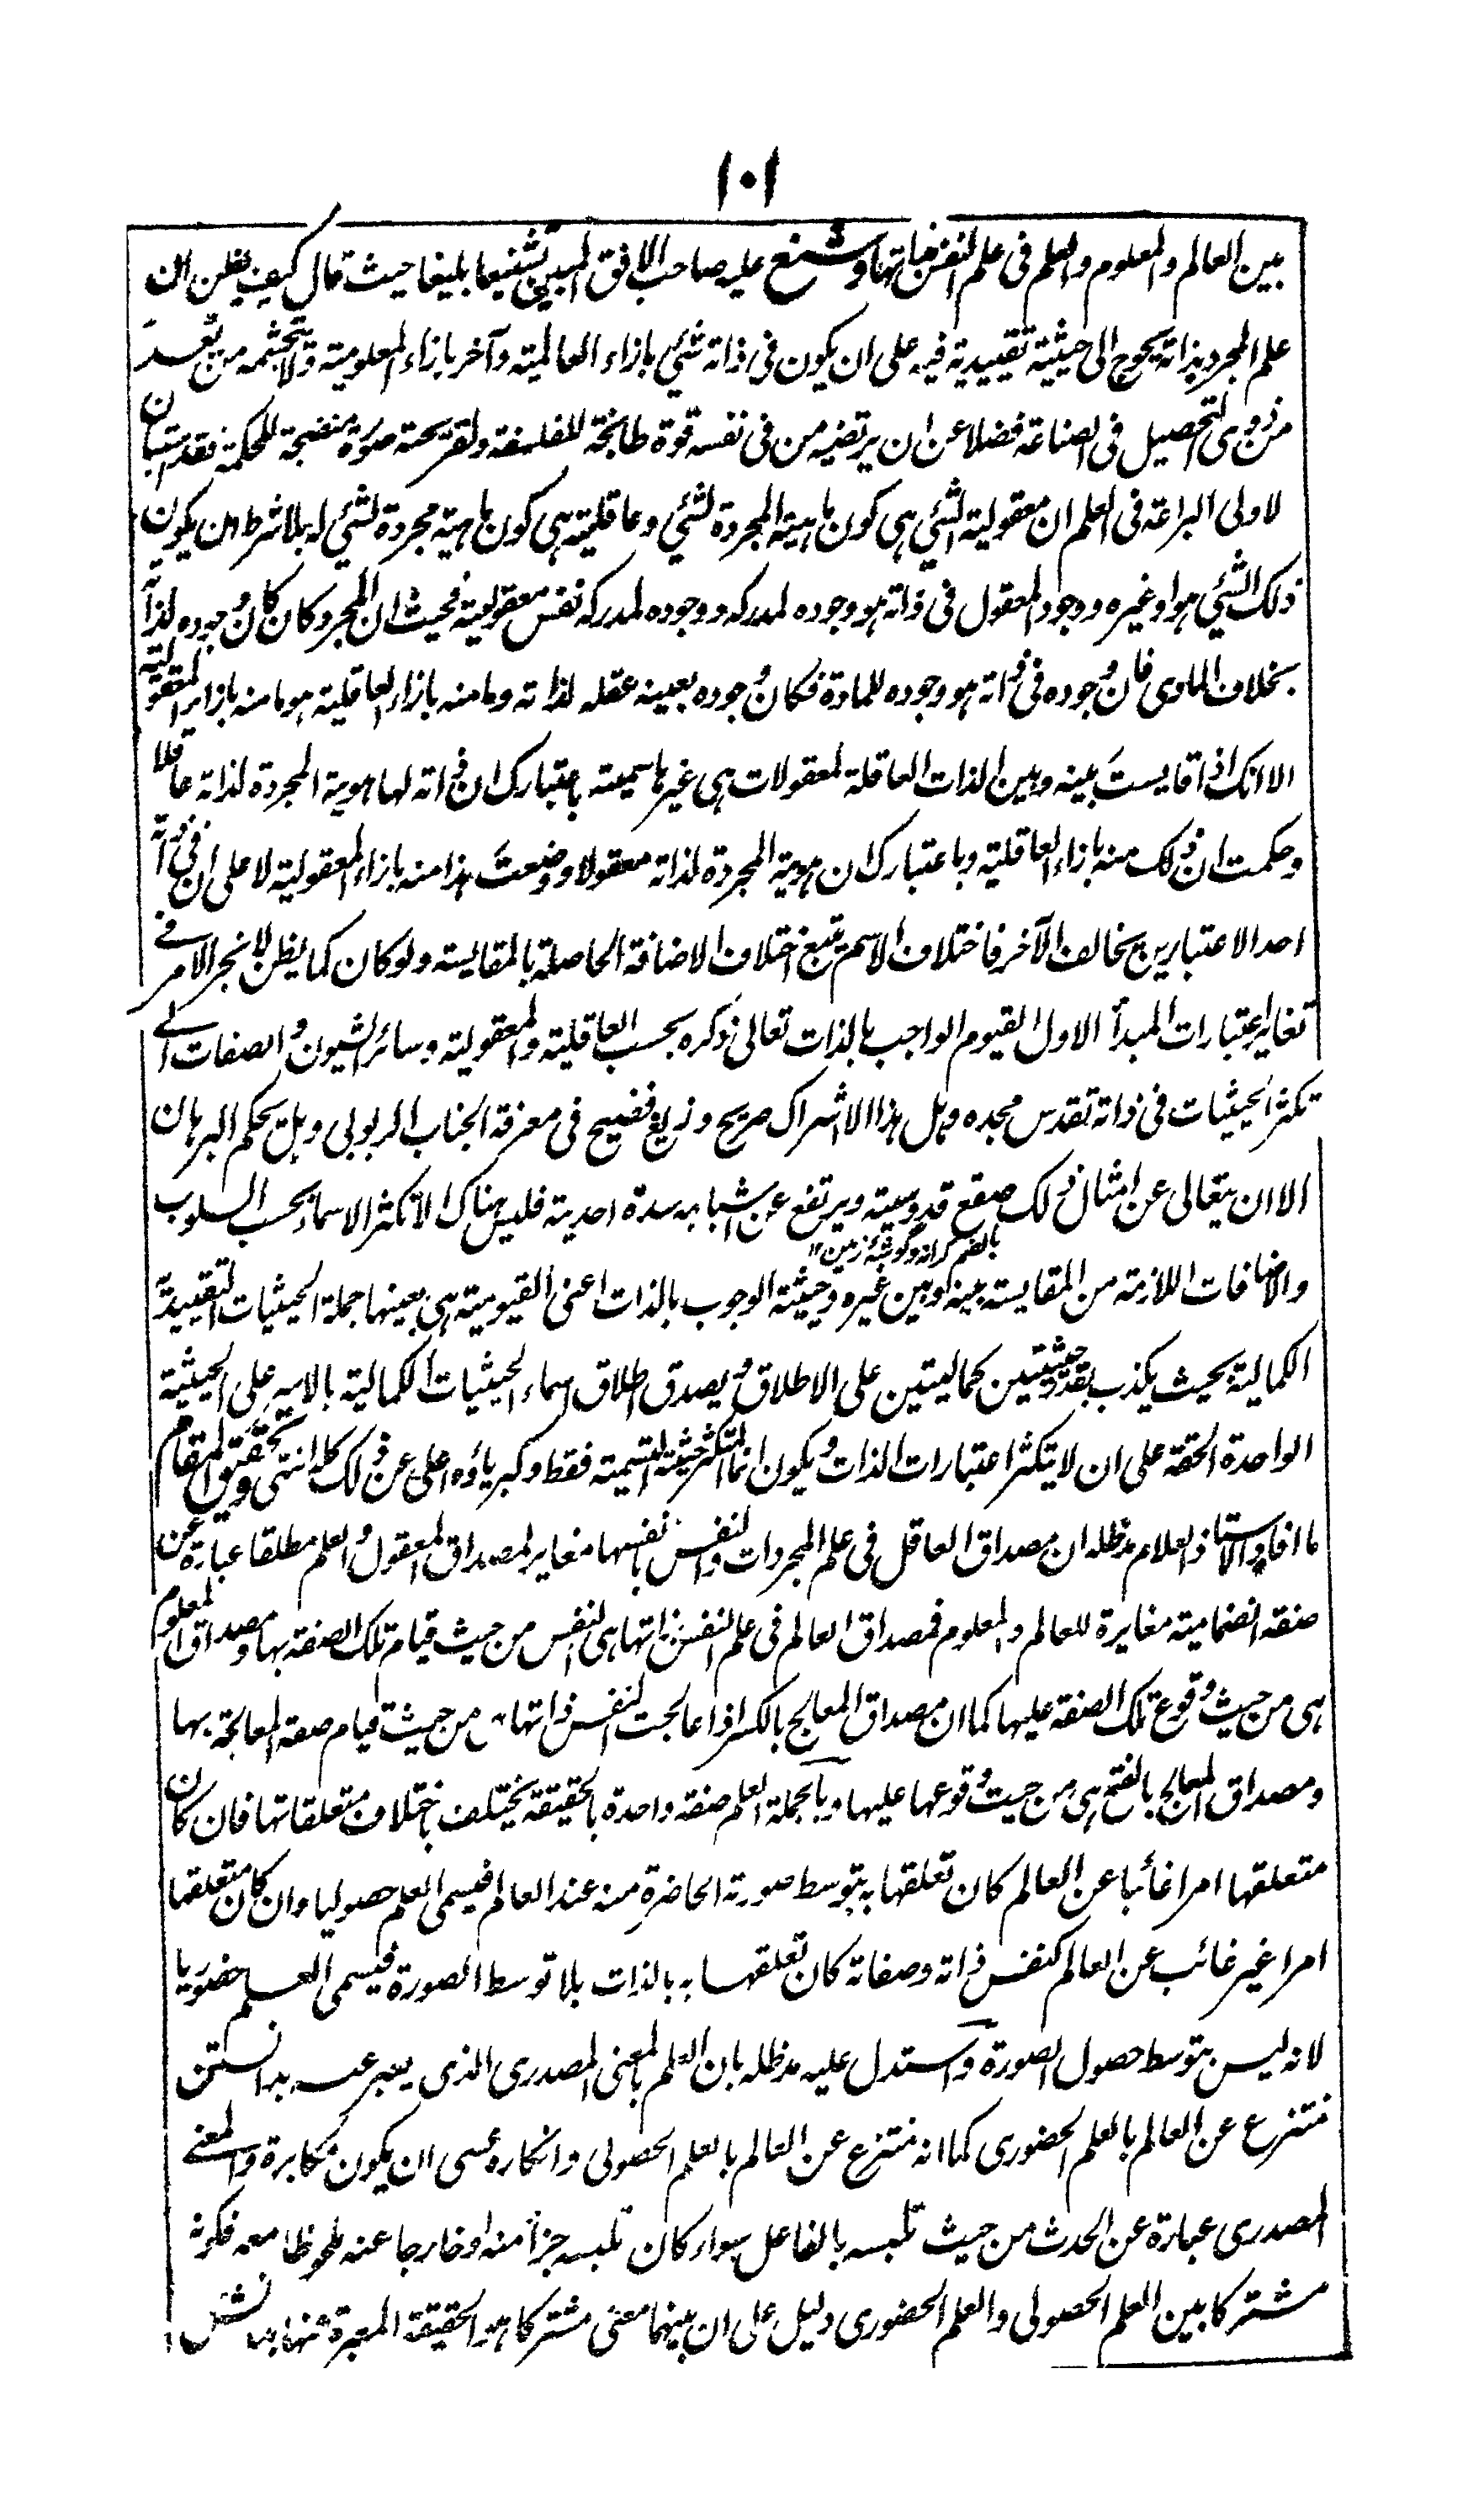 ١٠١
بين العالم والمعلوم والعلم فى علم النفس بذاتها وشنع عليه صاحب الافق المبين تشنيعا بليغا حيث قال كيف يظن ان
علم المجرد بذاته يحوج الى حيثية تقييدية فيه على ان يكون فى ذاته شئ بازاء العالمية وآخر بازاء المعلومية ولا تجشمه من تعد
من ذوى التحصيل فى الصناعة فضلا عن ان يرتضيه من فى نفسه قوة طابخة للفلسفة ولقريحته صورة منضجة للحكمة فقد استبان
لاولى البراعة فى العلم ان معقولية الشئ هى كون ماهيته المجردة لشئ وعاقليته هى كون ماهية مجردة لشئ له بلا شرط ان يكون
ذلك الشئ هو او غيره ووجود المعقول فى ذاته هو وجوده لمدركه ووجوده لمدركه نفس معقوليته فحيث ان المجرد كان كان وجوده لذاته
بخلاف المادى فان وجوده فى ذاته هو وجوده للمادة فكان وجوده بعينه عقله لذاته وما منه بازاء العاقلية هو ما منه بازاء المعقولية
الا انك اذا قايست بينه وبين الذات العاقلة لمعقولات هى غيرها سميته باعتبارك ان ذاته لها هوية المجردة لذاته عاقلا
وحكمت ان ذلك منه بازاء العاقلية وباعتبارك ان هويته المجردة لذاته معقولا ووضعت هذا منه بازاء المعقولية لا على ان فى ذاته
احد الاعتبارين يخالف الآخر فاختلاف الاسم يتبع اختلاف الاضافة الحاصلة بالمقايسة ولو كان كما يظن لانجر الامر فى
تغاير اعتبارات المبدأ الاول القيوم الواجب بالذات تعالى ذكره بحسب العاقلية والمعقولية وسائر الشيون والصفات الى
تكثر الحيثيات فى ذاته تقدس مجده وهل هذا الا اشراك صريح وزيغ فضيح فى معرفة الجناب الربوبى وهل يحكم البرهان
الا ان يتعالى عن امثال ذلك صقع قدوسيته ويرتفع عن اشباهه سدة احديته فليس هناك الا تكثر الاسماء بحسب السلوب
بالضم كرانه وگوشۀ زمين ۱۲
والاضافات اللازمة من المقايسة بينه وبين غيره وحيثية الوجوب بالذات اعنى القيومية هى بعينها جملة الحيثيات التقييدية
الكمالية بحيث يكذب بقد وحيثيتين كماليتين على الاطلاق ويصدق اطلاق اسماء الحيثيات الكمالية بالاسر على الحيثية
الواحدة الحقة على ان لا يتكثر اعتبارات الذات ويكون انما التكثر حيثية التسمية فقط وكبرياؤه اعلى عن ذلك كله انتهى وتحقيق المقام
ما افاد الاستاذ العلام مدظله ان مصداق العاقل فى علم المجردات والنفس بانفسها مغاير لمصداق المعقول والعلم مطلقا عبارة عن
صفة انضمامية مغايرة للعالم والمعلوم فمصداق العالم فى علم النفس بذاتها هى النفس من حيث قيام تلك الصفة بها ومصداق المعلوم
هى من حيث وقوع تلك الصفة عليها كما ان مصداق المعالج بالكسر اذا عالجت النفس ذاتها هى من حيث قيام صفة المعالجة بها
ومصداق المعالج بالفتح هى من حيث وقوعها عليها وبالجملة العلم صفة واحدة بالحقيقة يختلف باختلاف متعلقاتها فان كان
متعلقها امرا غائبا عن العالم كان تعلقها به بتوسط صورته الحاضرة منه عند العالم فيسمى العلم حصوليا وان كان متعلقها
امرا غير غائب عن العالم كنفس ذاته وصفاته كان تعلقها به بالذات بلا توسط الصورة فيسمى العلم حضوريا
لانه ليس بتوسط حصول الصورة واستدل عليه مدظله بان العلم بالمعنى المصدرى الذى يعبر عنه بدانستن
منتزع عن العالم بالعلم الحضورى كما انه منتزع عن العالم بالعلم الحصولى وانكاره عسى ان يكون مكابرة والمعنى
المصدرى عبارة عن الحدث من حيث تلبسه بالفاعل سواء كان تلبسه جزأ منه او خارجا عنه ملحوظا معه فكونه
مشتركا بين العلم الحصولى والعلم الحضورى دليل على ان بينهما معنى مشتركا هو الحقيقة المعبرة عنها بدانش